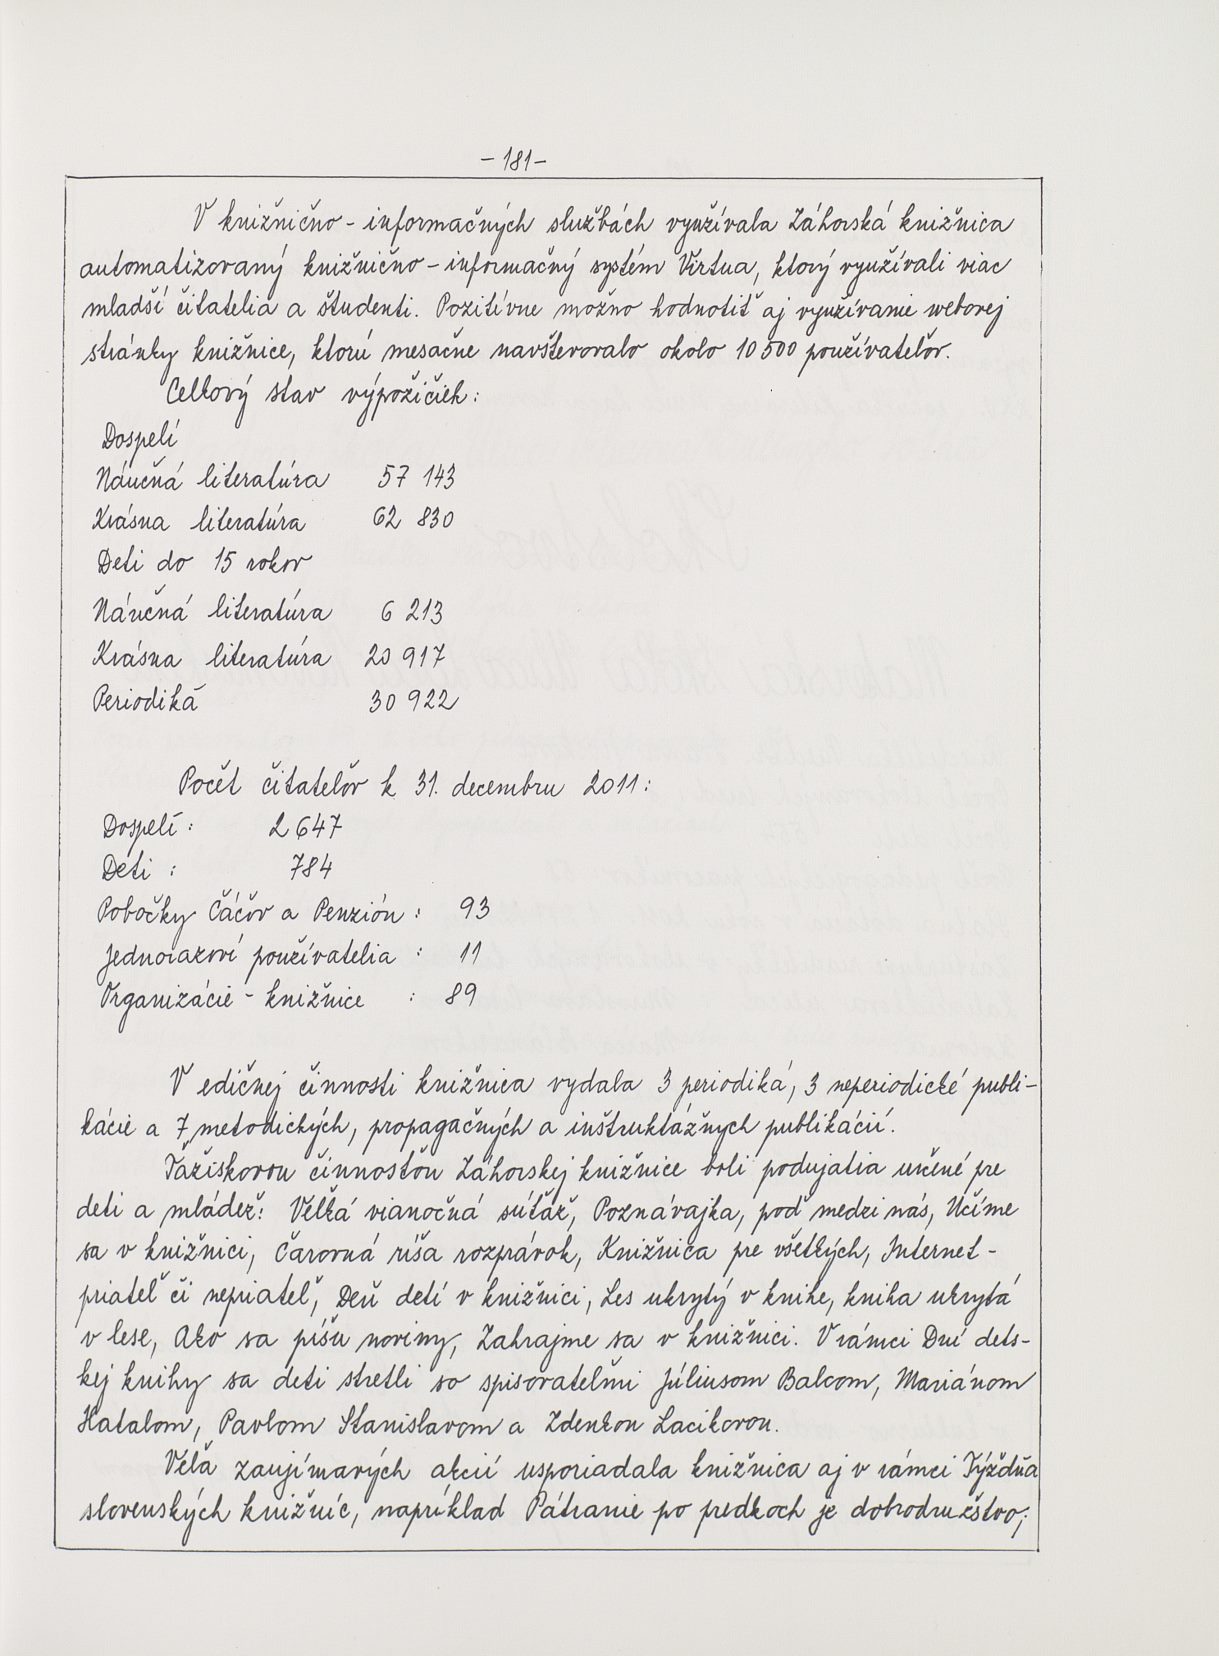 - 181 -
V knižnično - informačných službách využívala Záhorská knižnica
automatizovaný knižnično - informačný systém Virtua, ktorý využívali viac
mladší čitatelia a študenti. Pozitívne možno hodnotiť aj využívanie webovej
stránky knižnice, ktorú mesačne navštevovalo okolo 10 500 používateľov.
Celkový stav výpožičiek:
Dospelí
Náučná literatúra 57 143
Krásna literatúra 62 830
Deti do 15 rokov
Náučná literatúra 6 213
Krásna literatúra 20 917
Periodiká 30 922
Počet čitateľov k 31. decembru 2011:
Dospelí: 2 647
Deti : 784
Pobočky Čáčov a Penzión : 93
Jednorazoví používatelia : 11
Organizácie - knižnice : 89
V edičnej činnosti knižnica vydala 3 periodiká, 3 neperiodické publi-
kácie a 7 metodických, propagačných a inštruktážnych publikácií.
Ťažiskovou činnosťou Záhorskej knižnice boli podujatia určené pre
deti a mládež: Veľká vianočná súťaž, Poznávajka, poď medzi nás, Učíme
sa v knižnici, Čarovná ríša rozprávok, Knižnica pre všetkých, Internet -
priateľ či nepriateľ, Deň detí v knižnici, Les ukrytý v knihe, kniha ukrytá
v lese, Ako sa píšu noviny, Zahrajme sa v knižnici. V rámci Dní dets-
kej knihy sa deti stretli so spisovateľmi Júliusom Balcom, Mariánom
Hatalom, Pavlom Stanislavom a Zdenkou Lacikovou.
Veľa zaujímavých akcií usporiadala knižnica aj v rámci Týždňa
slovenských knižníc, napríklad Pátranie po predkoch je dobrodružstvo,